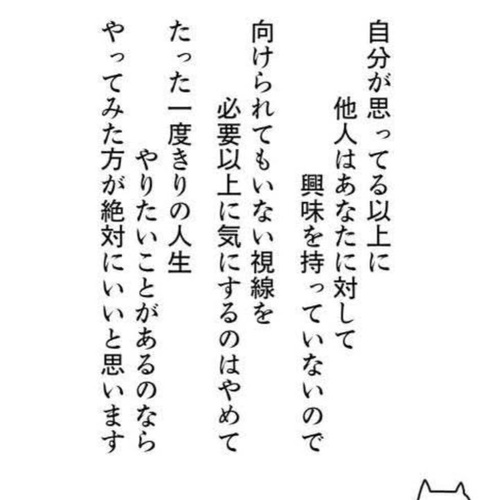 自分が思ってる以上に
他人はあなたに対して
興味を持っていないので
向けられてもいない視線を
必要以上に気にするのはやめて
たった一度きりの人生
やりたいことがあるのなら
やってみた方が絶対にいいと思います